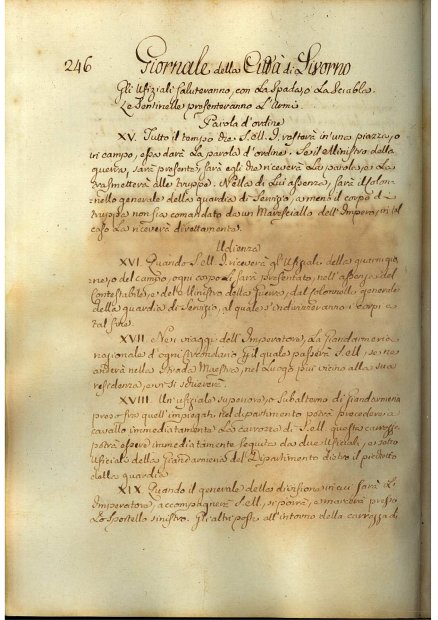 246 Giornale della Città di Livorno
Gli Ufiziali saluteranno, con La Spada, o La Sciabla.
Le Sentinelle presenteranno L'Armi.
Parola d'ordine
XV. Tutto il tempo che S. M. I. resterà in una piazza, o
in campo, essa darà La parola d'ordine. Se il Ministro della
guerra, sarà presente, sarà egli che riceverà La parola, e La
trasmetterà alle truppe. Nella di Lui assenza, sarà il Colon=
nello generale della guardia di Servizio, a meno il corpo di
truppa non sia comandato da un Maresciallo dell'Impero, in tal
caso La riceverà direttamente.
Udienza
XVI. Quando S. M. I. riceverà gl'Ufiziali della guarnigio
ne, o del campo, ogni corpo Li sarà presentato, nell'assenza del
Contestabile, e del Ministro della Guerra, dal Colonnello generale
della guardia di Servizio, al quale s'indirizzeranno i corpi a
tal fine.
XVII. Nei viaggi dell'Imperatore, La Giandarmeria
nazionale d'ogni circondario per il quale passerà S. M., se ne
anderà nella Strada Maestra, nel Luogo più vicino alla sua
residenza, e vi si schiererà.
XVIII. Un ufiziale superiore, o Subalterno di giandarmeria
preso fra quell'impiegati nel dipartimento potrà precedere a
cavallo immediatamente La carrozza di S. M. questa carrozza
potrà essere immediatamente seguita da due Ufficiali, e sotto
ufficiali della Giandarmeria del Dipartimento dietro il picchetto
della guardia.
XIX. Quando il generale della divisione in cui sarà L'
Imperatore, accompagnerà S. M., si porrà, e marcerà presso
Lo Sportello sinistro. Gli altri posti all'intorno della carrozza di